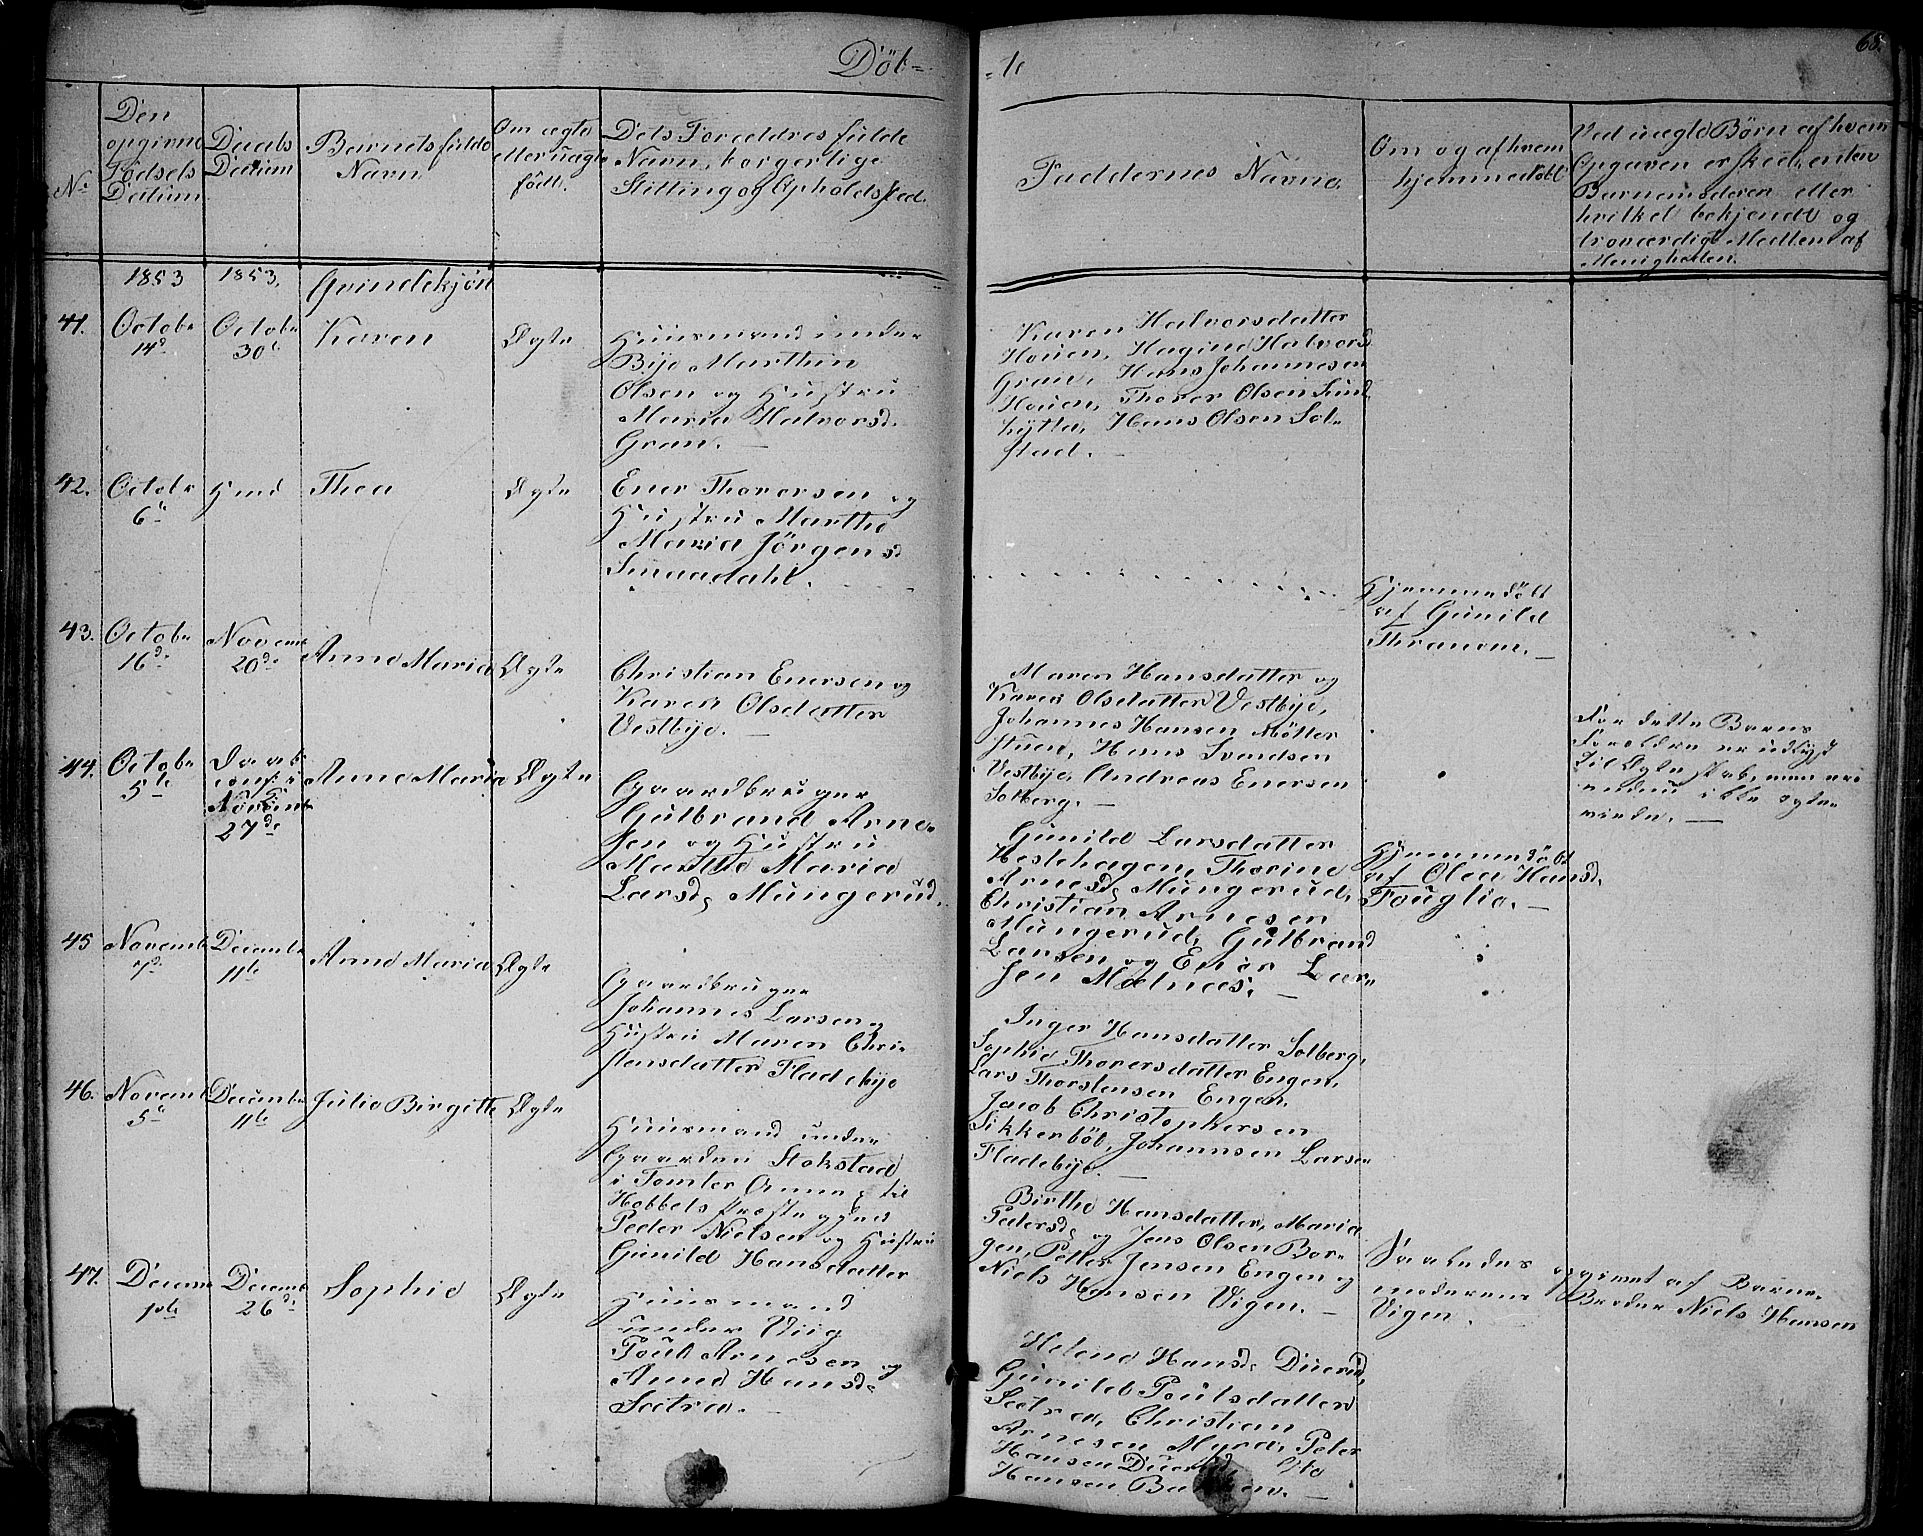 Döb-
-te
68.
No
Den
opgivne
Födsels
Datum
Daabs
Datum
Barnets fulde
Navn
Om ægte
eller uægte
födt.
Dets Forældres fulde
Navn, borgerlige
Stilling og Opholdssted.
Faddernes Navne.
Om og af hvem
hjemmedöbt
Ved uægte Börn af hvem
Opgaven er skeet, enten
Barnemoderen eller
hvilket bekjendt og
troværdigt Medlem af
Menigheden.
1853
1853.
Qvindekjön
41.
Octobr
14d
Octobr
30te
Karen
Ægte
Huusmand under
Bye Marthin
Olsen og Hustru
Maria Halvorsd.
Gran. —
Karen Halvorsdatter
Houen, Hagine Halvorsd
Gran, Hans Johannesen
Houen, Thorer Olsen Sund
hytta, Hans Olsen Sol-
stad. —
42.
Octobr
6te
Thea
Ægte
Ener Thorersen og
Hustru Marthe
Maria Jörgensd
Smaadahl.
Hjemmedöbt
af Gunild
Thranem. —
43.
Octobr
16de
Novemb
20de
Anne Maria
Ægte
Christian Enersen og
Karen Olsdatter
Vestbye. —
Maren Hansdatter og
Karen Olsdatter Vestbye,
Johannes Hansen Mölter
stuen, Hans Svendsen
Vestbye, Andreas Enersen
Solberg. —
For dette Barns
Forældre er udlyst
til Ægteskab, men ere
endnu ikke egte-
viede. —
44.
Octobr
5te
Daab
conf. i
K
Novemb
27de
Anne Maria
Ægte
Gaardbruger
Gulbrand Arne-
sen og Hustru
Marthe Maria
Larsd. Mungerud.
Gunild Larsdatter
Heslehagen, Thorine
Arnesd. Mungerud,
Christian Arnesen
Mungerud, Gulbrand
Larsen og Ener Lar-
sen Molnæs. —
Hjemmedöbt
af Olea Hansd.
Fouglie. —
45
Novemb
7de
Decembr
11te
Anne Maria
Ægte
Gaardbruger
Johannes Larsen og
Hustru Maren Chri-
stensdatter Fladebye
Inger Hansdatter Solberg,
Sophie Thorersdatter Engen,
Lars Thorstensen Engen,
Jacob Christophersen
Sikkerböl, Johannsen Larsen
Fladebye. —
46.
Novemb
5te
Decembr
11te
Julie Birgitte
Ægte
Huusmand under
Gaarden Stokstad
i Tomter Annex til
Hobbels Præstegjeld
Peder Nielsen og Hustru
Gunild Hansdatter
Birthe Hansdatter, Maria
Pedersd. og Jens Olsen Bor-
gen, Peller Jensen Engen og
Niels Hansen Vigen. —
Saaledes opgivet af Barne-
moderens Broder Niels Hansen
Vigen.
47.
Decemb
1ste
Decemb
26de
Sophie
Ægte
Huusmand
under Viig
Poul Arnesen og
Anne Hansd.
Sætra. —
Helene Hansd. Duerud,
Gunild Poulsdatter
Sætra, Christian
Arnesen Myra, Peter
Hansen Duerud, Ole
Hansen Bakken. —